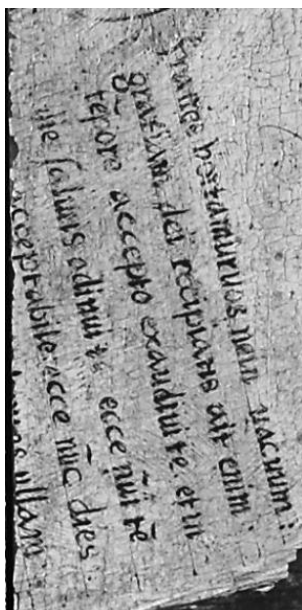 fratres hortamuruos nein uacuum:
gratiam dei recipiatis ait enim:
tēpore accepto exaudiui te. et in
die salutis adiuui te ecce nūc tē
acceptabile: ecce nūc dies
ullam